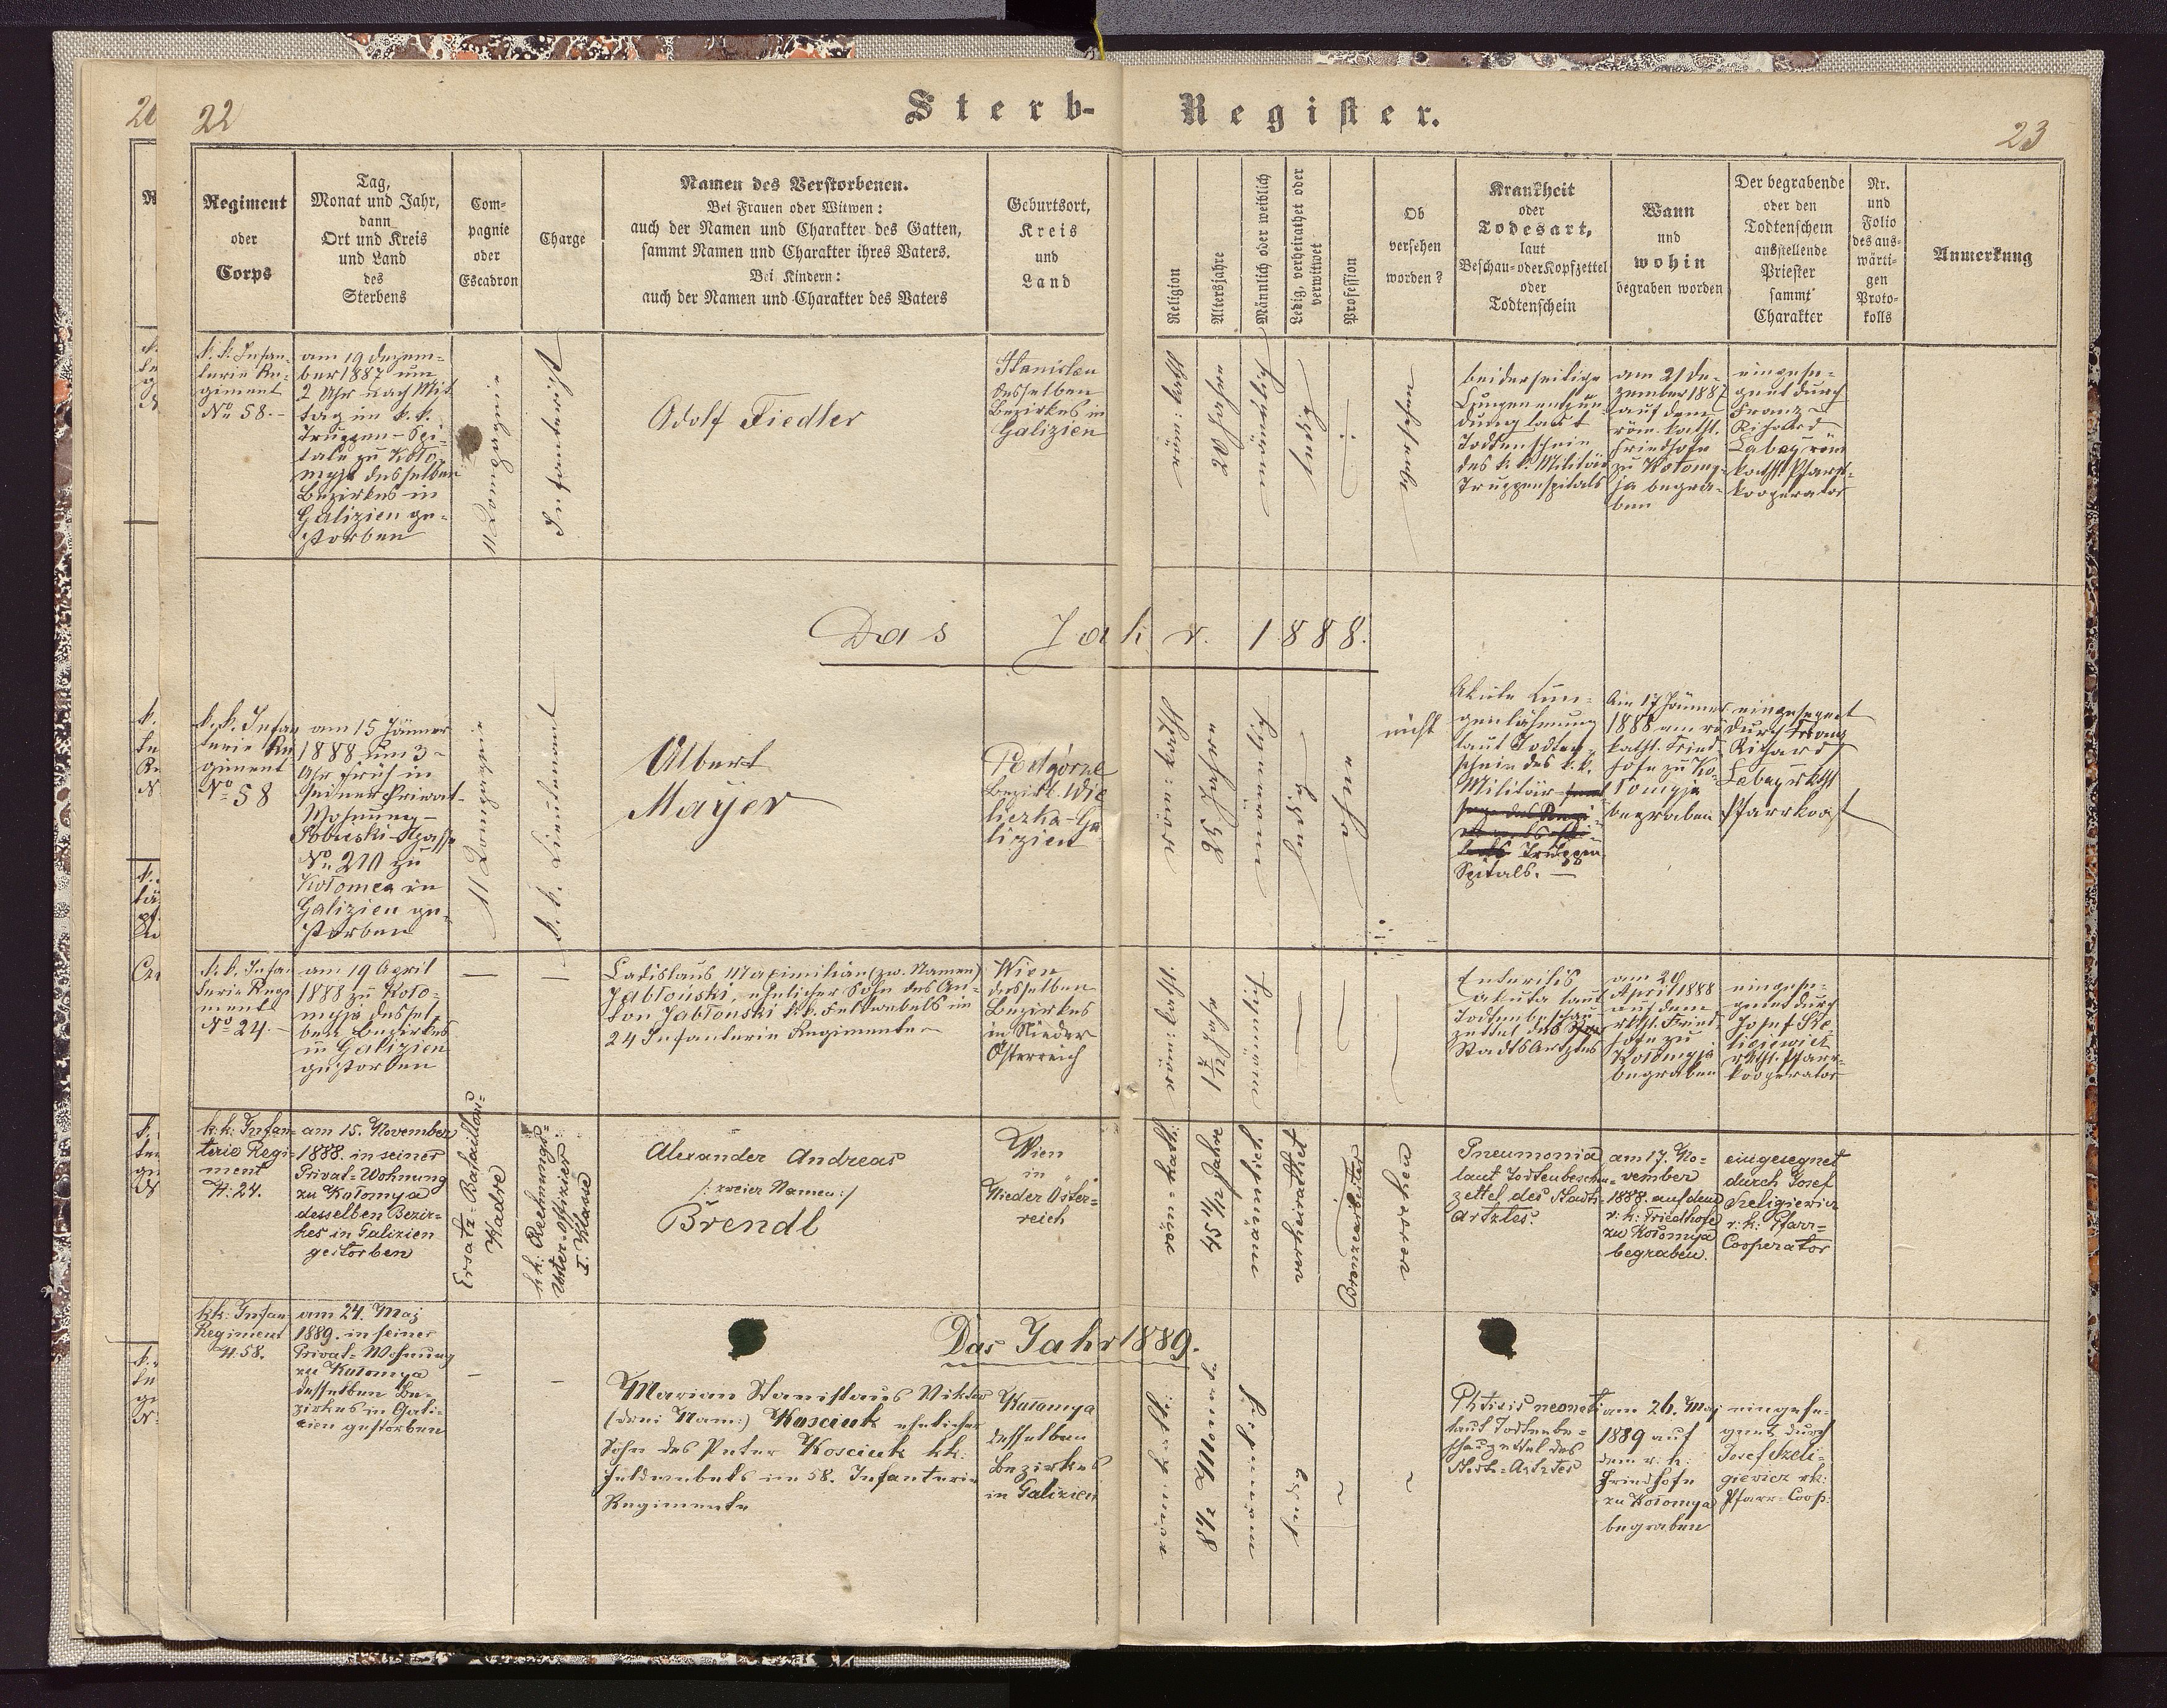 22
Sterb-
Register.
23
Regiment
oder
Corps
Tag,
Monat und Jahr,
dann
Ort und Kreis
und Land
des
Sterbens
Com-
pagnie
oder
Escadron
Charge
Namen des Verstorbenen.
Bei Frauen oder Witwen:
auch der Namen und Charakter des Gatten,
sammt Namen und Charakter ihres Vaters.
Bei Kindern:
auch der Namen und Charakter des Vaters
Geburtsort,
Kreis
und
Land
Religion
Altersjahre
Männlich oder weiblich
Ledig, verheirathet oder
verwitwet
Profession
Ob
versehen
worden?
Krankheit
oder
Todesart,
laut
Beschau- oder Kopfzettel
oder
Todtenschein
Wann
und
wohin
begraben worden
Der begrabende
oder den
Todtenschein
ausstellende
Priester
sammt
Charakter
Nr.
und
Folio
des aus-
wärti-
gen
Proto-
kolls
Anmerkung
k. k. Infan-
terie Re-
giment
No 58.-
am 19 Dezem-
ber 1887 um
2 Uhr nach Mit
tag im k. k.
Truppen-Spi-
tale zu Koło-
myja desselben
Bezirkes in
Galizien ge-
storben
11 Compagnie
Infanterist
Adolf Fiedler
Stanislau
desselben
Bezirkes in
Galizien
20 Jahre
ledig
beiderseitige
Lungenentzün-
dung laut
Todtenschein
des k. k. Militär
Truppenspitals
am 21 De-
zember 1887
auf dem
röm. kath.
Friedhofe
zu Kołomy-
ja begra-
ben
eingese-
gnet durch
Franz
Richard
Labay röm
kath Pfarr-
kooperator
Das Jahr 1888.
k. k. Infan
terie Re
giment
No 58
am 15 Jänner
1888 um 3
Uhr früh in
seiner Privat-
Wohnung
Sobieski-Gasse
No 210 zu
Kołomea in
Galizien ge-
storben
11 Compagnie
k. k. Lieutenant
Albert
Mayer
Podgórze
Bezirk Wie
liczka-Ga
lizien
25 Jahre
ledig
ohne
nicht
Akute Lun-
genlähmung
laut Todten-
schein des k. k.
Militär
Truppen
Spitals.
Am 17 Jänner
1888 am rö
kath. Fried-
hofe zu Ko-
łomyja
begraben
eingesegnet
durch Franz
Richard
Labay r kth
Pfarrkoop
k. k. Infan
terie Regi
ment
No 24.-
am 19 April
1888 zu Koło-
myja dessel-
ben Bezirkes
in Galizien
gestorben
Ladislaus Maximilian (zw. Namen)
Jabłoński, ehelicher Sohn des An-
ton Jabłonski k. k. Feldwebels im
24 Infanterie Regimente
Wien
desselben
Bezirkes
in Nieder
Österreich
1 7/12 Jahre
Enteritis
akuta laut
Todtenbeschau-
zettel des
Stadts Arztes
am 20
April 1888
auf dem
rkth. Fried-
hofe zu
Kołomyja
begraben
eingese-
gnet durch
Josef
rkth. Pfarr-
kooperator
kk: Infan-
terie Regi-
ment
N: 24.
am 15. November
1888. in seiner
Privat-Wohnung
zu Kołomya
desselben Bezir-
kes in Galizien
gestorben
Ersatz-Bataillons-
Kadre
kk: Rechnungs-
Unter-offizier
I. Klasse
Alexander Andreas
/: zweier Namen :/
Brendl
Wien
in
Nieder Öster-
reich
45 11/12 Jahre
verheirathet
Pneumonia
laut Todtenbeschau-
zettel des Stadt-
Arztes.
am 17. No-
vember
1888. auf dem
r: k: Friedhofe
zu Kołomya
begraben.
eingesegnet
durch Josef
Szeligiewicz
r: k: Pfarr-
Cooperator
Das Jahr 1889.
kk: Infan
Regiment
N. 58.
am 24. Maj
1889. in seiner
Privat-Wohnung
zu Kołomya
desselben Be-
zirkes in Gali-
zien gestorben
Marian Stanislaus Viktor
(drei Nam:) Kosciuk ehelicher
Sohn des Peter Kosciuk kk:
Feldwebels im 58. Infanterie
Regimente
Kołomya
desselben
Bezirkes
in Galizien
8 1/2 Monat
ledig
Phtisis neonati
laut Todtenbe-
schauzettel des
Stadt-Arztes
am 26. Maj
1889 auf
dem r: k:
Friedhofe
zu Kołomya
begraben
eingese-
gnet durch
Josef Szeli-
giewicz rk:
Pfarr-Coop: